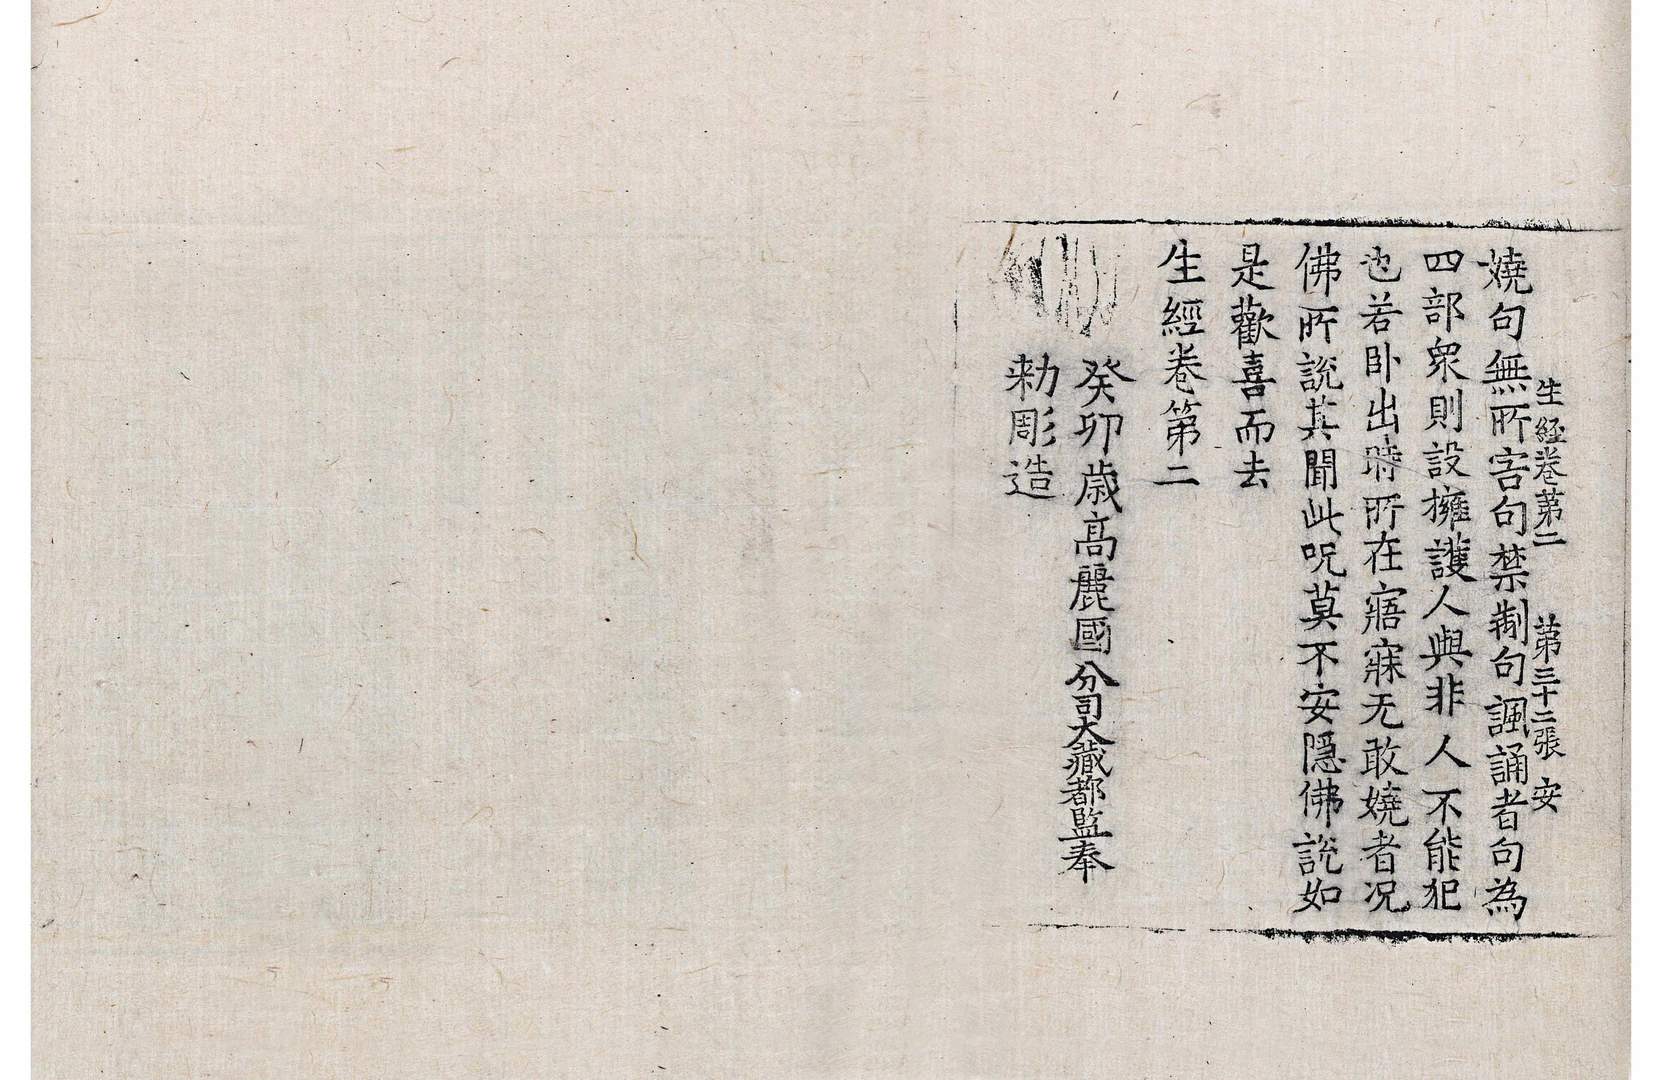 生經卷第二 第三十二張 安
嬈句無所害句禁制句諷誦者句為
四部衆則設擁護人與非人不能犯
也若卧出時所在寤寐无敢嬈者况
佛所說其聞此呪莫不安隱佛說如
是歡喜而去
生經卷第二
癸卯歲高麗國分司大藏都監奉
勑彫造